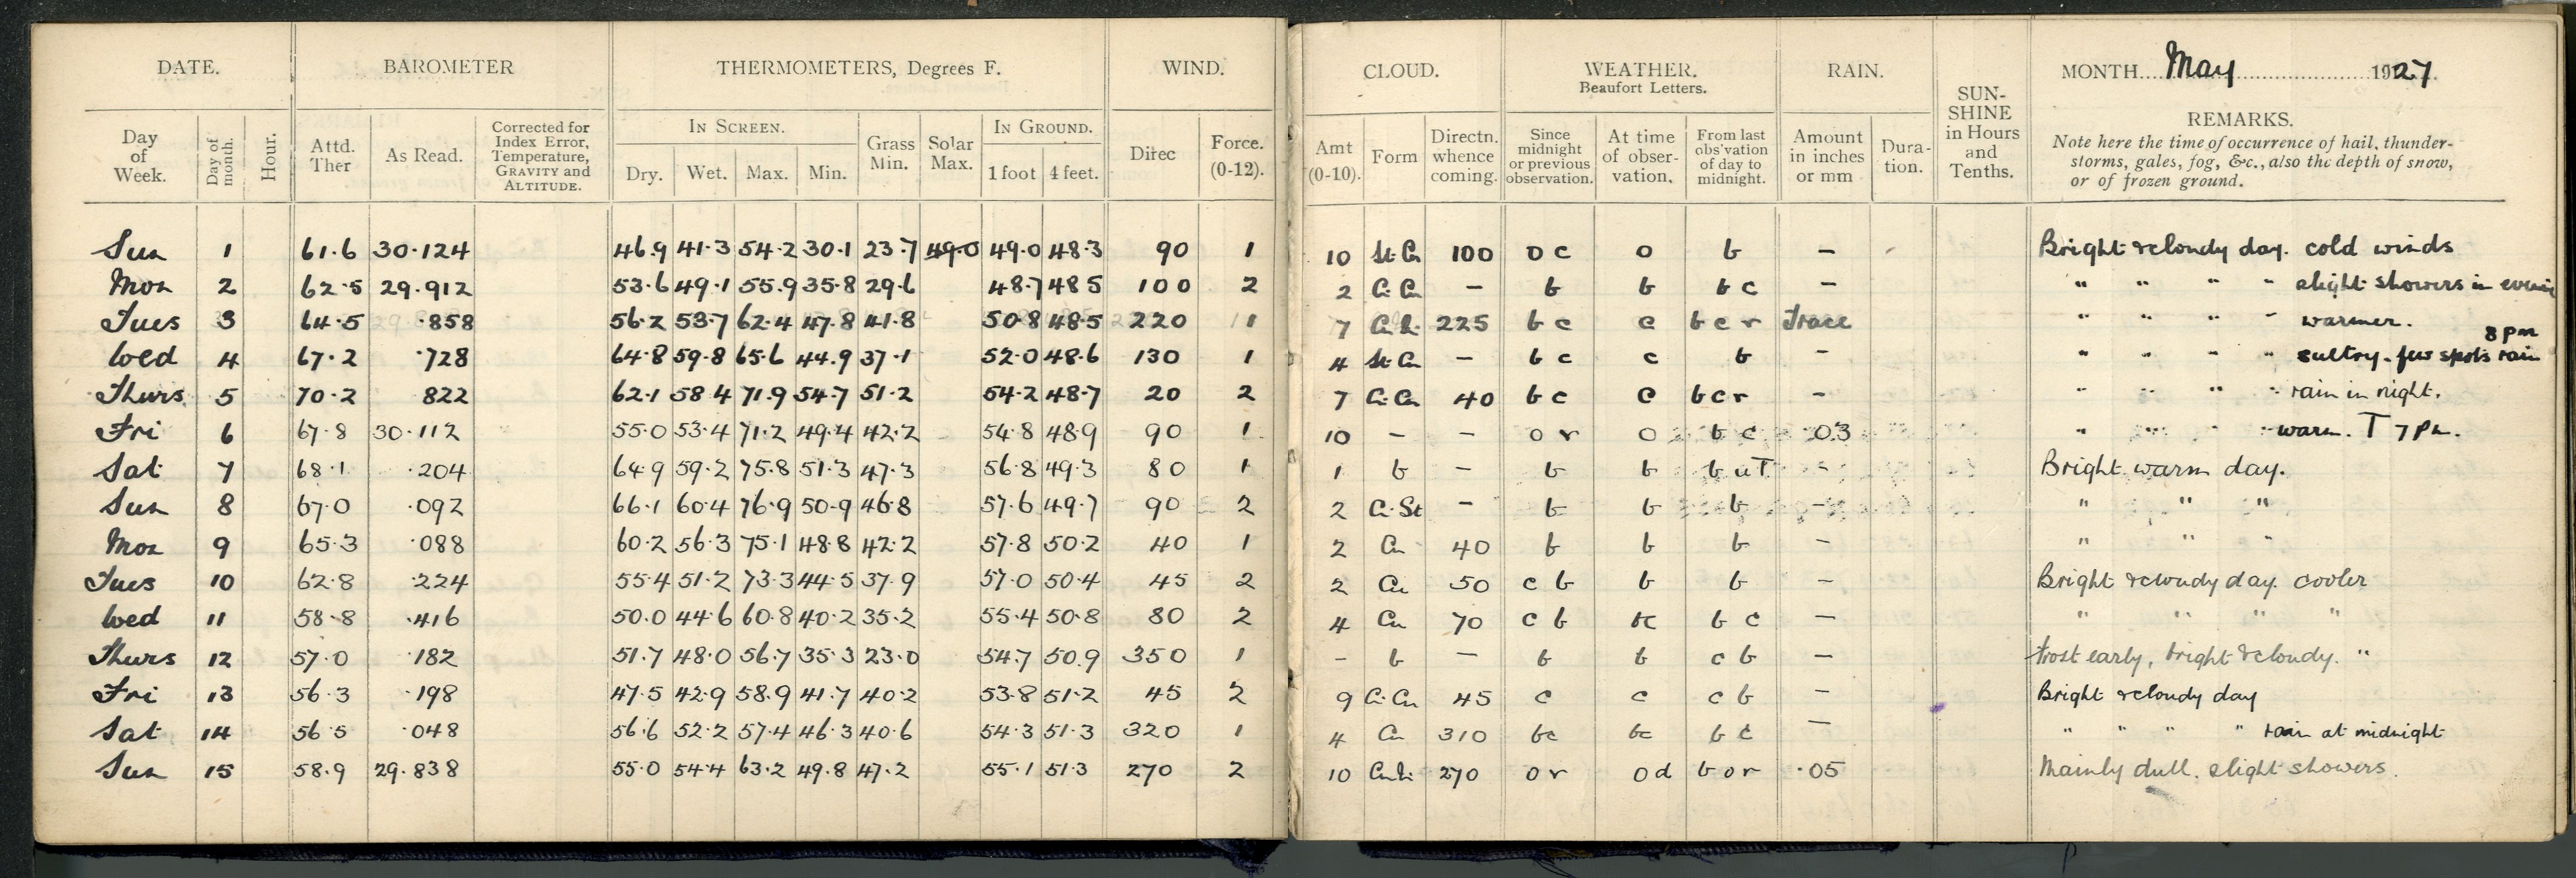 DATE. BAROMETER THERMOMETERS, Degrees F. WIND. CLOUD. WEATHER. Beaufort Letters. RAIN. SUN-SHINE in Hours and Tenths. MONTH May 1927
REMARKS.
Note here the time of occurrence of hail, thunder-
storms, gales, fog, &c., also the depth of snow,
or of frozen ground.
Day of Week. Day of month. Hour. Attd. Ther As Read. Corrected for Index Error, Temperature, GRAVITY and ALTITUDE. IN SCREEN. Dry. Wet. Max. Min. Grass Min. Solar Max. IN GROUND. 1 foot 4 feet. Direc Force. (0-12). Amt (0-10). Form Directn. whence coming. Since midnight or previous observation. At time of obser-vation. From last obs'vation of day to midnight. Amount in inches or mm Dura-tion.
Sun 1 61.6 30.124 46.9 41.3 54.2 30.1 23.7 49.0 49.0 48.3 90 1 10 St.Cu 100 o c o b – - Bright & cloudy day. cold winds
Mon 2 62.5 29.912 53.6 49.1 55.9 35.8 29.6 48.7 48 5 100 2 2 Ci.Cu – b b b c – " " " " slight showers in evening
Tues 3 64.5 .858 56.2 53.7 62.4 47.8 41.8 50.8 48.5 220 1 7 225 b c c b c r Trace " " " " warmer.
Wed 4 67.2 .728 64.8 59.8 65.6 44.9 37.1 52.0 48.6 130 1 4 St Cu – b c c b – " " " " sultry. few spots rain 8 pm
Thurs 5 70.2 822 62.1 58 4 71.9 54.7 51.2 54.2 48.7 20 2 7 Ci.Cu 40 b c c b c r – " " " " rain in night.
Fri 6 67.8 30.112 55.0 53.4 71.2 49.4 42.2 54.8 48.9 90 1 10 – – o r o b c .03 " " " " warm. T 7 pm.
Sat 7 68.1 .204 64.9 59.2 75.8 51.3 47.3 56.8 49.3 80 1 1 b – b b b u T – Bright warm day.
Sun 8 67.0 .092 66.1 60.4 76.9 50.9 46.8 57.6 49.7 90 2 2 Ci.St – b b b – " " "
Mon 9 65.3 .088 60.2 56.3 75.1 48.8 42.2 57.8 50.2 40 1 2 Cu 40 b b b – " " "
Tues 10 62.8 .224 55.4 51.2 73.3 44.5 37.9 57.0 50.4 45 2 2 Cu 50 c b b b – Bright & cloudy day. cooler
Wed 11 58.8 .416 50.0 44.6 60.8 40.2 35.2 55.4 50.8 80 2 4 Cu 70 c b bc b c – " " " "
Thurs 12 57.0 .182 51.7 48.0 56.7 35.3 23.0 54.7 50.9 350 1 – b – b b c b – frost early, bright & cloudy. "
Fri 13 56.3 .198 47.5 42.9 58.9 41.7 40.2 53.8 51.2 45 2 9 Ci.Cu 45 c c c b – Bright & cloudy day
Sat 14 56.5 .048 56.6 52.2 57.4 46.3 40.6 54.3 51.3 320 1 4 Cu 310 bc bc b c – " " " " rain at midnight
Sun 15 58.9 29.838 55.0 54.4 63.2 49.8 47.2 55.1 51.3 270 2 10 270 o r o d b o r .05 Mainly dull. slight showers.